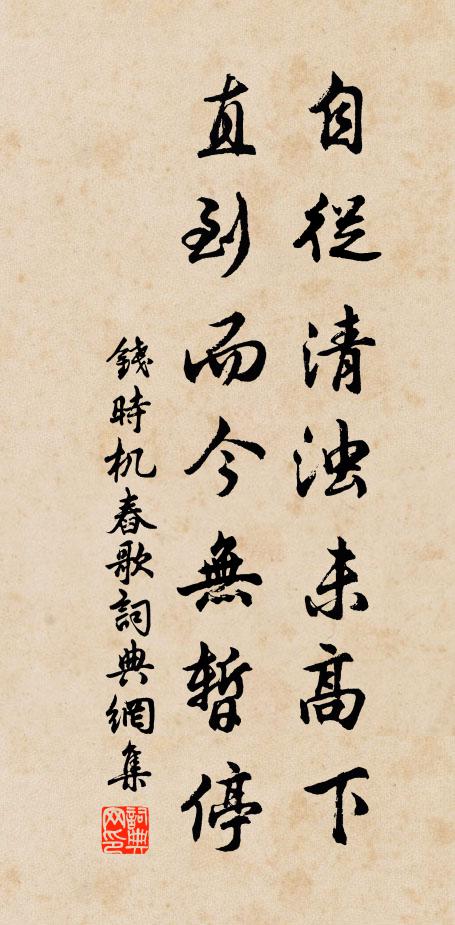 自從清浊未高下
直到而今無暫停
錢時机舂歌詞典網集
詞典网印